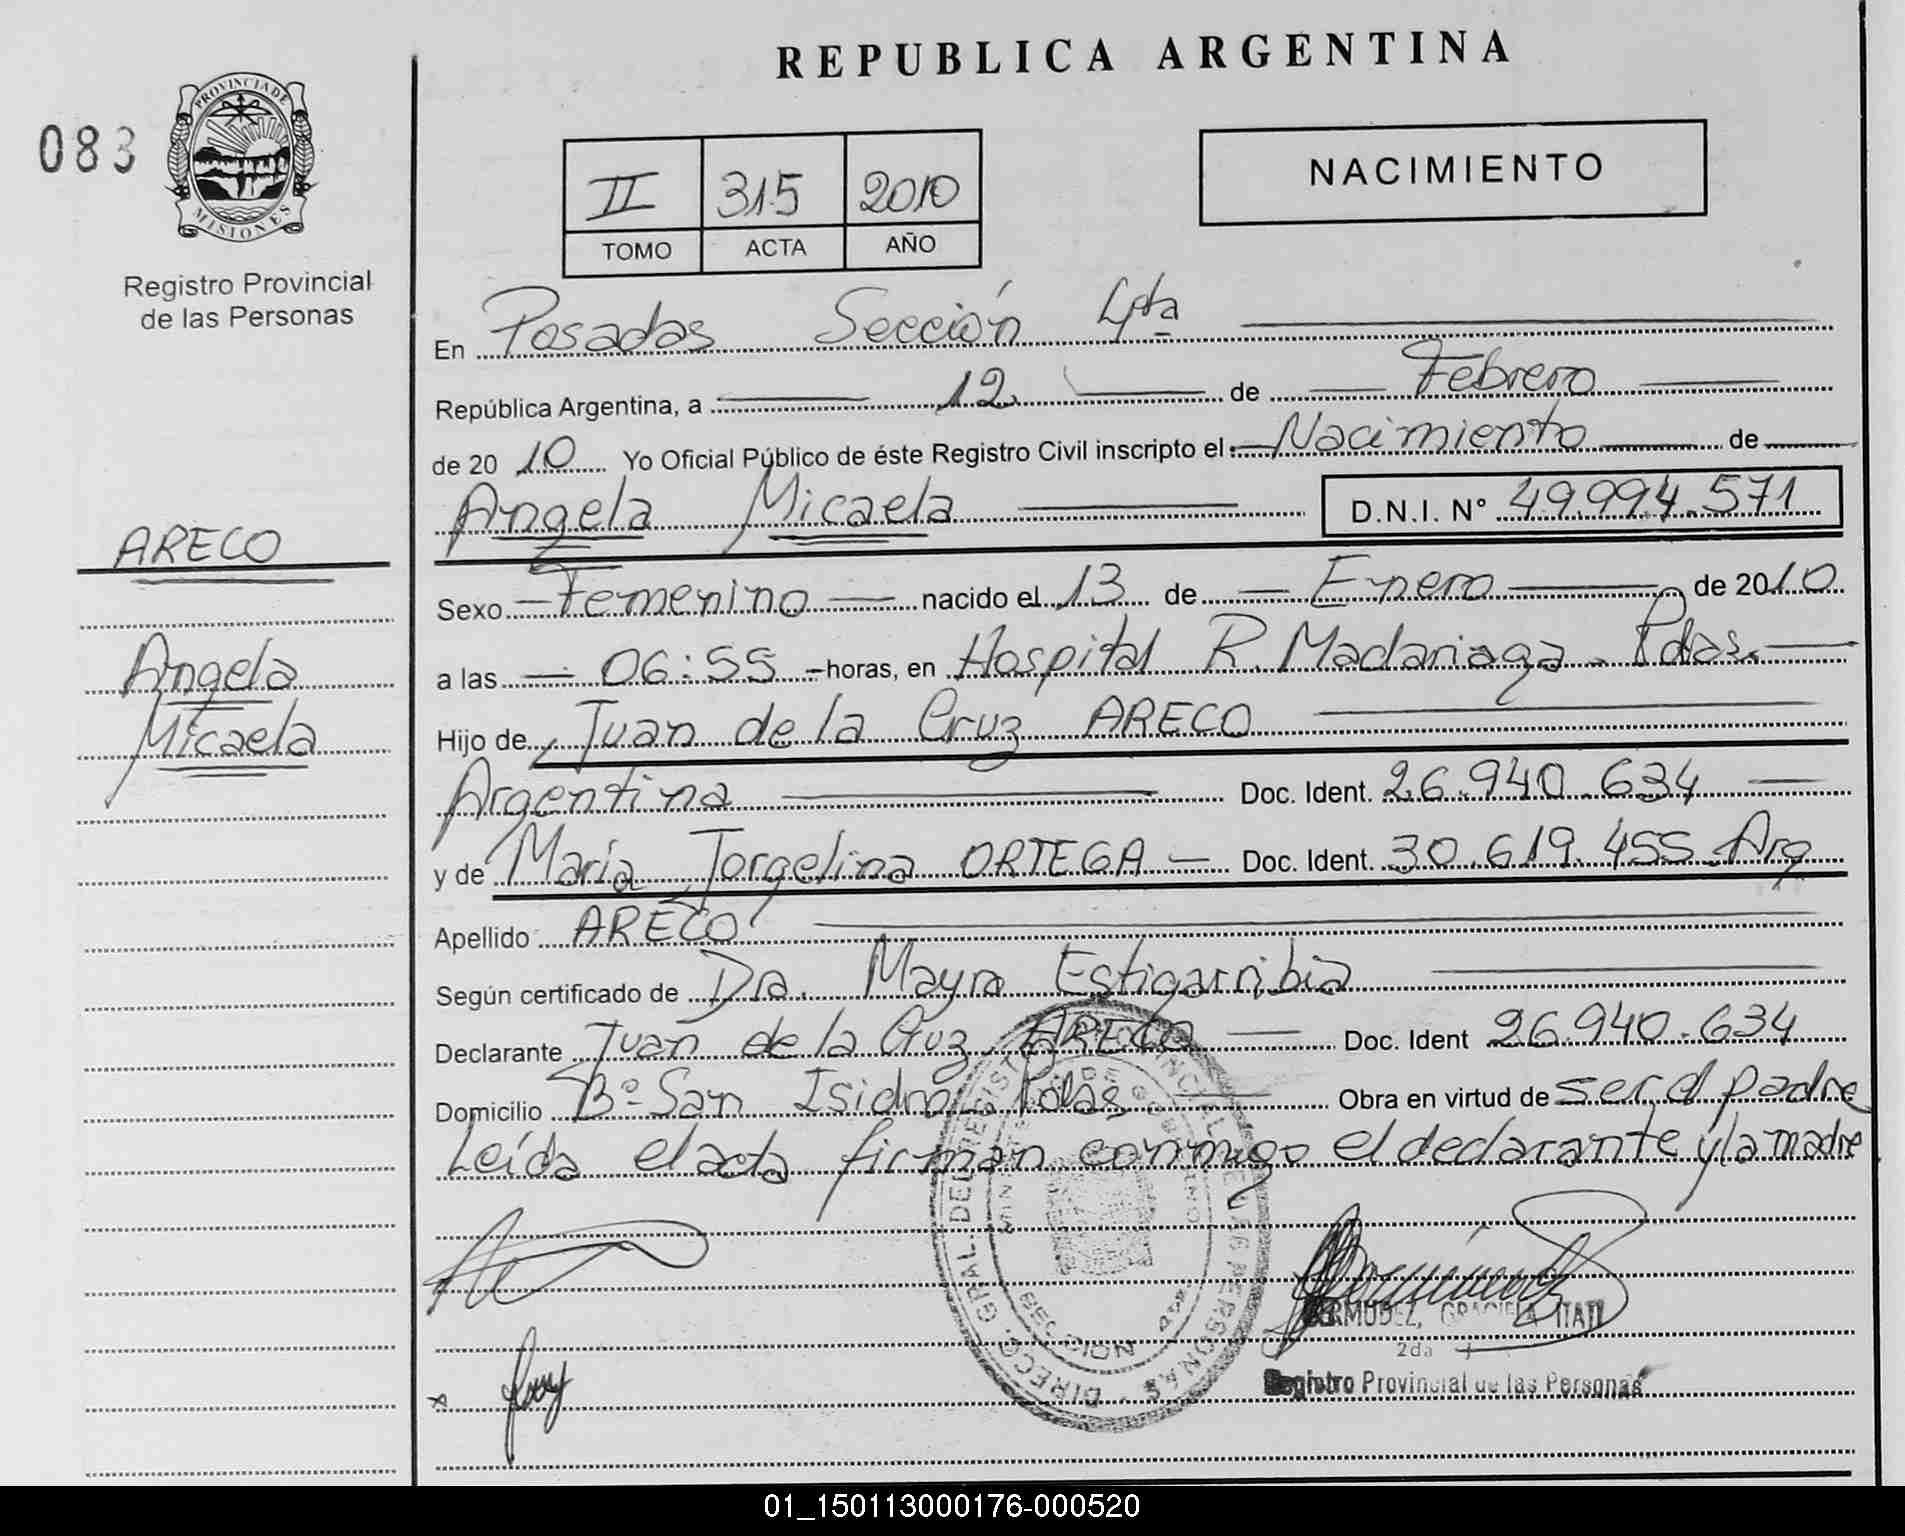 REPUBLICA ARGENTINA
083
PROVINCIA DE MISIONES
Registro Provincial
de las Personas
II 315 2010
TOMO ACTA AÑO
NACIMIENTO
En Posadas Sección 4ta
República Argentina, a 12 de Febrero
de 2010 Yo Oficial Público de éste Registro Civil inscripto el Nacimiento de
Angela Micaela D.N.I. Nº 49.994.571
ARECO
Angela
Micaela
Sexo Femenino nacido el 13 de Enero de 2010
a las 06:55 horas, en Hospital R. Madariaga. Pdas.
Hijo de Juan de la Cruz ARECO
Argentina Doc. Ident. 26.940.634
y de María Jorgelina ORTEGA Doc. Ident. 30.619.455 Arg
Apellido ARECO
Según certificado de Dra. Mayra Estigarribia
Declarante Juan de la Cruz ARECO Doc. Ident 26.940.634
Domicilio Bº San Isidro Pdas Obra en virtud de ser el padre
Leída el acta firman conmigo el declarante y la madre
BERMUDEZ, GRACIELA ITATI
2da
Registro Provincial de las Personas
01_150113000176-000520